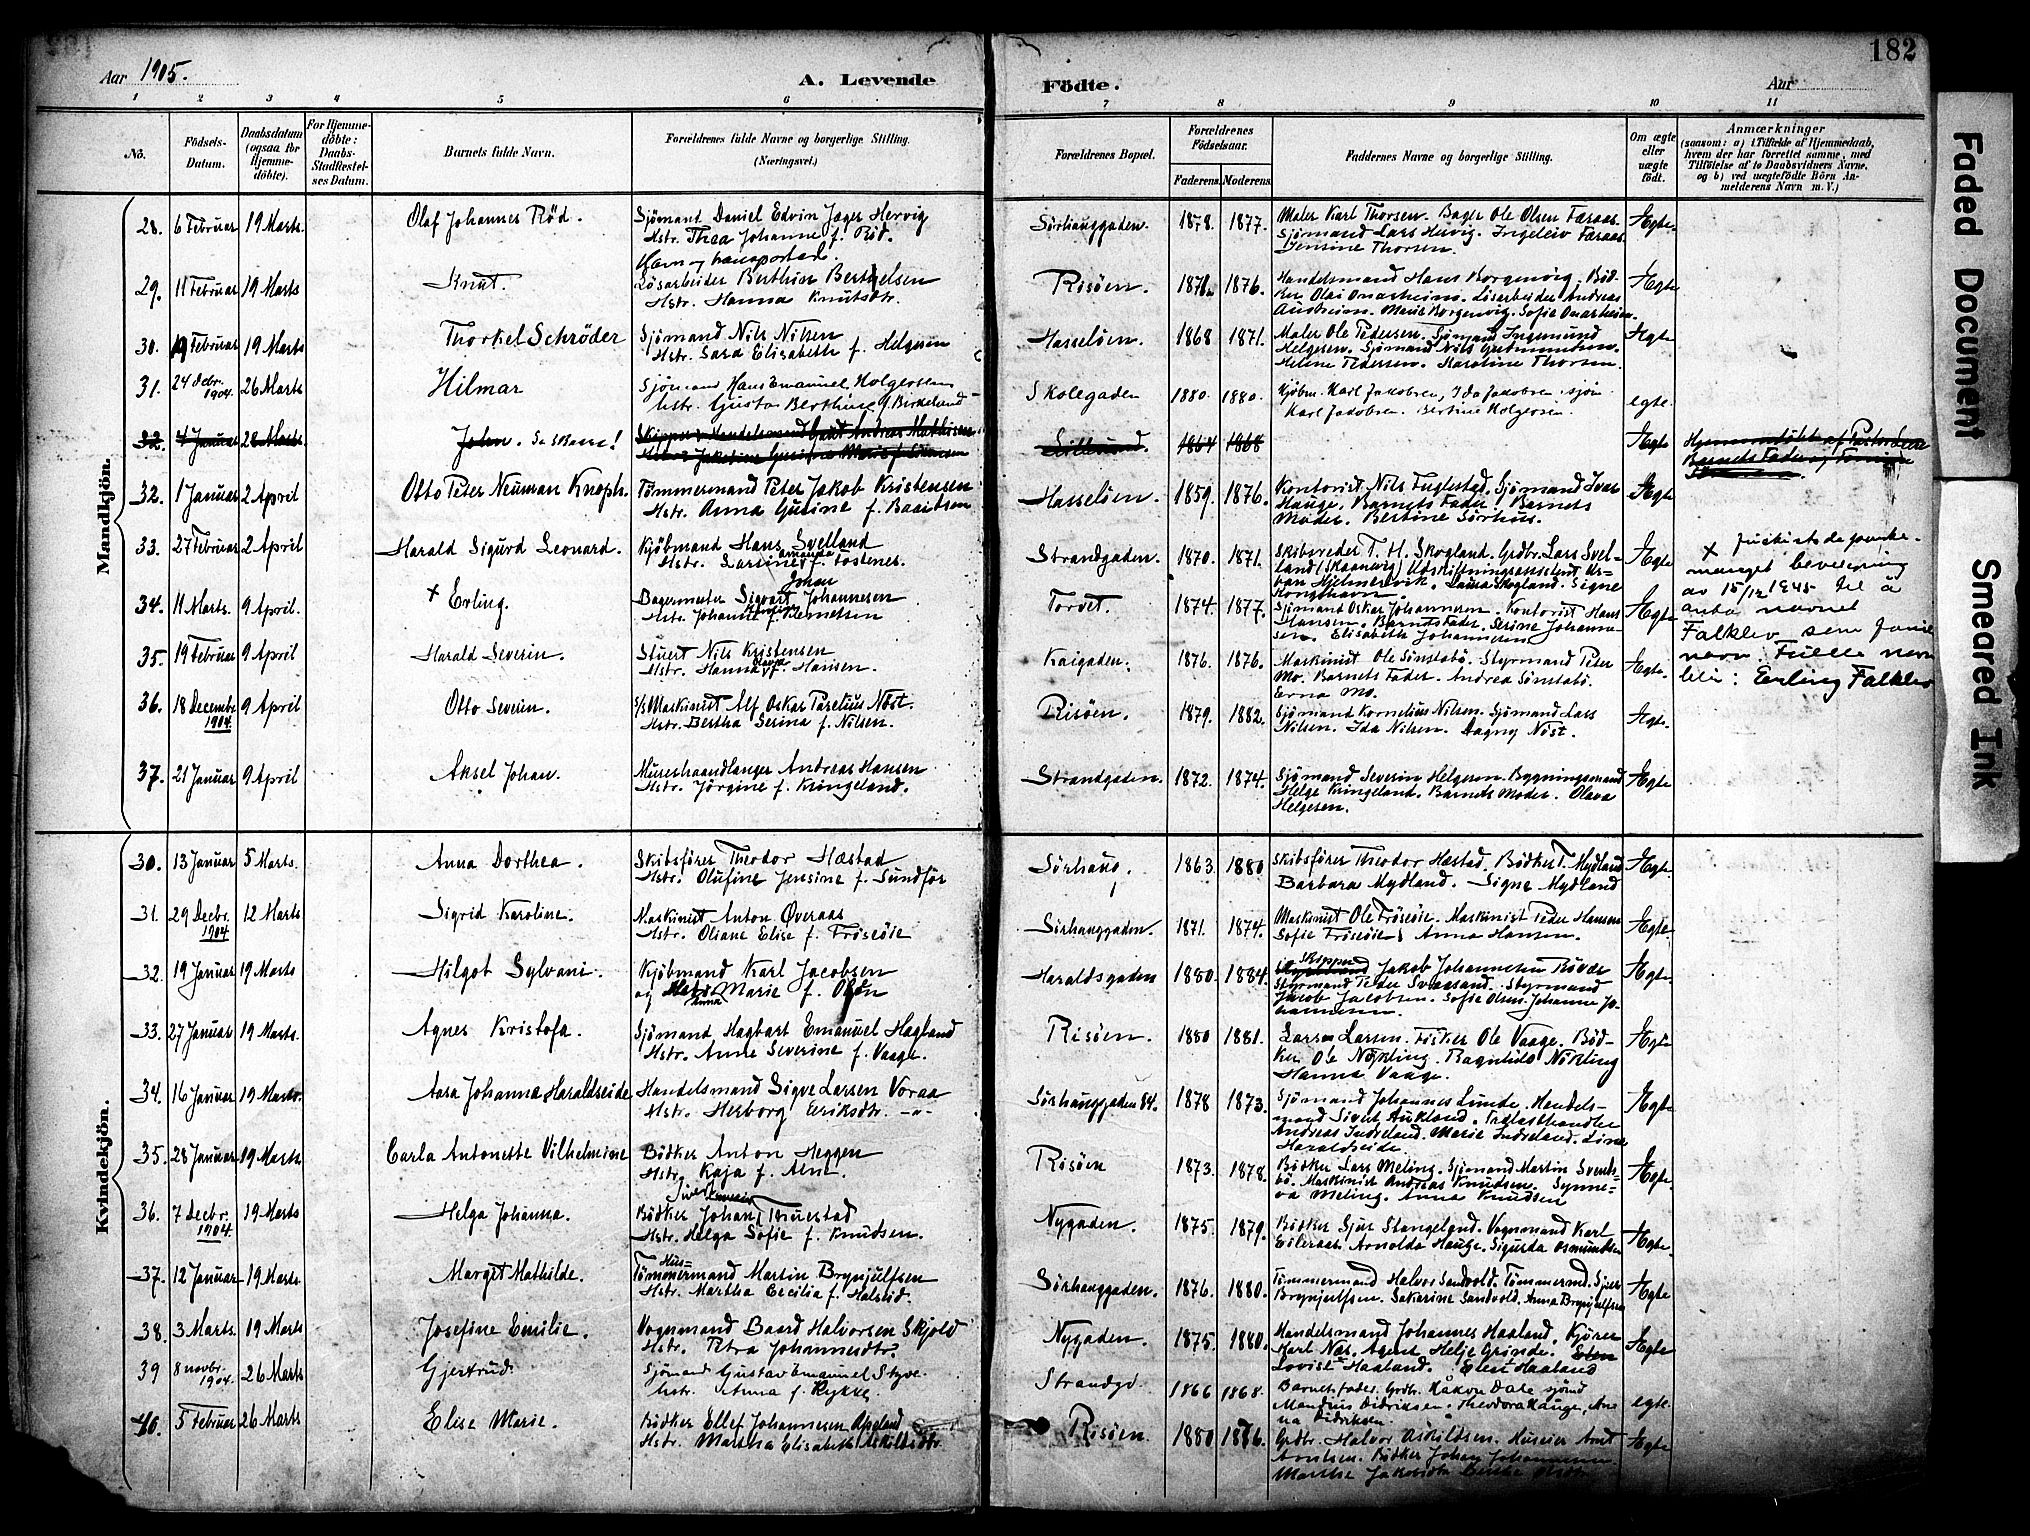 182
Aar 1905.
A. Levende
Födte.
Aar
1 2 3 4 5 6 7 8 9 10 11
No.
Födsels-Datum.
Daabsdatum (ogsaa for Hjemme-döbte).
For Hjemme-döbte: Daabs-Stadfæstel-ses Datum.
Barnets fulde Navn.
Forældrenes fulde Navne og borgerlige Stilling.
(Næringsvei.)
Forældrenes Bopæl.
Forældrenes Födselsaar.
Faderens. Moderens.
Faddernes Navne og borgerlige Stilling.
Om ægte eller uægte födt.
Anmærkninger
(saasom: a) i Tilfælde af Hjemmedaab, hvem der har forrettet samme, med Tilföielse af to Daabsvidners Navne, og b) ved uægtefödte Börn Anmelderens Navn m. V.)
Mandkjön.
28. 6 Februar 19 Marts. Olaf Johannes Röd. Sjömand Daniel Edvin Jæger Hervig
Hstr. Thea Johanne f. Röd.
Sörhauggaden. 1878. 1877. Maler Karl Thorsen. Bager Ole Olsen Færaas.
Sjömand Lars Hervig. Ingeleiv Færaas.
Jensine Thorsen. Ægte.
29. 11 Februar 19 Marts Knut. Havn og transportarb.
Lösarbeider Berthin Berthelsen
Hstr. Hanna Knutsdtr.
Risöen. 1876. Handelsmand Hans Borgenvig. Böd-
ker Olai Onarheim. Lösarbeider Andreas
Marie Borgenvig. Sofie Onarheim. Ægte
30. 19 Februar 19 Marts Thorkel Schröder Sjömand Nils Nilsen
Hstr. Sara Elisabeth f. Helgesen
Hasselöen. 1868 1871. Maler Ole Pedersen. Sjömand Ingemund
Helgesen. Sjömand Nils Gudmundsen.
Helene Pedersen. Karoline Thorsen. Ægte
31. 24 Debr. 1904. 26 Marts Hilmar Sjömand Hans Emanuel Holgersen
hstr. Gusta Berthine f. Birkeland
Skolegaden 1880. 1880. Kjöbm. Karl Jakobsen, Ida Jakobsen. sjöm
Karl Jakobsen. Bertine Holgersen. egte.
32. 4 Januar 28 Marts John. Se skasse! Skipper & Handelsmand Gaut Andreas Mathisen
1864 1868 Ægte
32. 1 Januar 2 April Otto Peter Neuman Knoph. Tömmermand Peter Jakob Kristensen
Hstr. Anna Gurine f. Baardsen
Hasselöen. 1859. 1876. Kontorist Nils Fuglestad. Sjömand Ivar
Hauge. Barnets Fader. Barnets
Moder. Bertine Sörhus. Ægte
33. 27 Februar 2 April Harald Sigurd Leonard. Kjöbmand Hans Svelland
Hstr. Larsine Amanda f. Fosenes.
Strandgaden. 1870. 1871. Skibsreder T. H. Skogland. Grdbr. Lars Svel-
land (Skaanevig) Udskiftningsassistent Ur-
ban Hjelmervik. Laura Skogland. Signe
Konghavn. Ægte
34. 11 Marts. 9 April. × Erling. Bagermester Sigvart Johan Johannesen
Hstr. Johanne f. Klemetsen
Torvet. 1874. 1877. Sjömand Oskar Johannesen. Kontorist Hans
Hansen. Barnets Fader. Serine Johanne-
sen. Elisabeth Johannesen Ægte.
× Justisdepartemanget bevilgning
av 15/12 1945 til å
anta navnet
Falklev som familie
navn. Fulle navn
blir: Erling Falklev
35. 19 Februar 9 April Harald Severin. Stuert Nils Kristensen
Hstr. Hanna Olava f. Hansen.
Kaigaden. 1876. 1876. Maskinist Ole Sönstabö. Styrmand Peter
Mo. Barnets Fader. Andrea Sönstabö.
Erna Mo. Ægte.
36. 18 Decembr 1904. 9 April Otto Severin. s/s Maskinist Alf Oskar Paselius Nöst.
Hstr. Bertha Serina f. Nilsen.
Risöen. 1879. 1882. Sjömand Kornelius Nilsen. Sjömand Lars
Nilsen. Ida Nilsen. Dagny Nöst. Ægte.
37. 21 Januar 9 April Aksel Johan. Murerhaandlanger Andreas Hansen
Hstr. Jörgine f. Kringeland.
Strandgaden. 1872. 1874. Sjömand Severin Helgesen. Bygningsmand
Helge Kringeland. Barnets Moder. Olava
Helgesen. Ægte
Kvindekjön.
30. 13 Januar 5 Marts. Anna Dorthea. Skibsförer Theodor Hæstad
Hstr. Olufine Jensine f. Sundför
Sörhaug. 1863. 1880 Skibsförer Theodor Hæstad. Bödker T. Mydland
Barbara Mydland. Signe Mydland Ægte.
31. 29 Decbr. 1904 12 Marts Sigrid Karoline. Maskinist Anton Øveraas
Hstr. Oliane Elise f. Fröseöie
Sörhauggaden. 1871. 1874. Maskinist Ole Fröseöie. Maskinist Peder Hansen
Sofie Fröseöie. Anna Hansen. Ægte.
32. 19 Januar 19 Marts Hilgot Sylvani. Kjöbmand Karl Jacobsen
og Anna Marie f. Olsen
Haraldsgaden 1880. 1884. Skipper Jakob Johannesen Rövær
Styrmand Peder Svaasand. Styrmand
Jacob Jacobsen. Sofie Olsen. Johanne Jo-
hannesen. Ægte
33. 27 Januar 19 Marts. Agnes Kristofa. Sjömand Hagbart Emanuel Hagland
Hstr. Anne Severine f. Vaage.
Risöen. 1880 1881. Lars Larsen. Fisker Ole Vaage. Böd-
ker Ole Nökling. Ragnhild Nökling
Hanna Vaage. Ægte
34. 16 Januar 19 Marts. Aasa Johanna Haraldseide Handelsmand Sigve Larsen Voraa
Hstr. Herborg Eriksdtr. -"-
Sörhauggaden 84. 1878 1873. Sjömand Johannes Lunde. Handels-
mand Sivert Aukland. Trælasthandler
Andreas Indreland. Marie Indreland. Line
Haraldseide. Ægte
35. 28 Januar 19 Marts Carla Antonette Vilhelmine Bödker Anton Heggen
Hstr. Kaja f. Arne.
Risöen 1873. 1878. Bödker Lars Meling. Sjömand Martin Svends-
bö. Maskinist Andreas Knudsen. Synne-
va Meling. Anna Knudsen Ægte.
36. 7 Decbr. 1904 19 Marts Helga Johanna. Bödker Johan Truestad
Hstr. Helga Sofie f. Knudsen.
Nygaden. 1875. 1879. Bödker Sjur Stangeland. Vognmand Karl
Eileraas. Arnolda Hauge. Sigurda Osmundsen Ægte.
37. 12 Januar 19 Marts. Marget Mathilde. Hus-
Tömmermand Martin Brynjulfsen
Hstr. Martha Cecilia f. Halseid.
Sörhauggaden. 1876. 1880. Tömmermand Halvor Sandvold. Tömmermd. Sjur
Brynjulfsen. Sakerine Sandvold. Anna Brynjulfsen Ægte
38. 3 Marts. 19 Marts Josefine Emilie. Vognmand Baard Halvorsen Skjold
Hstr. Petra Johannesdtr.
Nygaden. 1875. 1880. Handelsmand Johannes Haaland. Kjörer
Karl Næs. Agent Helje Grinde. Elen
Lovise Haaland. Elen Haaland Ægte
39 8 novbr. 1904. 26 Marts Gjertrud. Sjömand Gustav Emanuel Styve.
hstr. Anna f. Rykke.
Strandgd. 1866 1868. Barnets fader. Grdbr. Håkon Dale sjömd
Mandius Didriksen. Theodora Hauge, An-
na Didriksen. egte.
40. 5 Februar 26 Marts Elise Marie. Bödker Ellef Johannesen Apeland
Hstr. Martha Elisabeth Askildsdtr.
Risöen. 1880 1876. Grdbr. Halvor Askildsen. Huseier Arnt
Arntsen. Bödker Johan Johannesen.
Marthe Jakobsdtr. Ægte
Faded Document
Smeared Ink